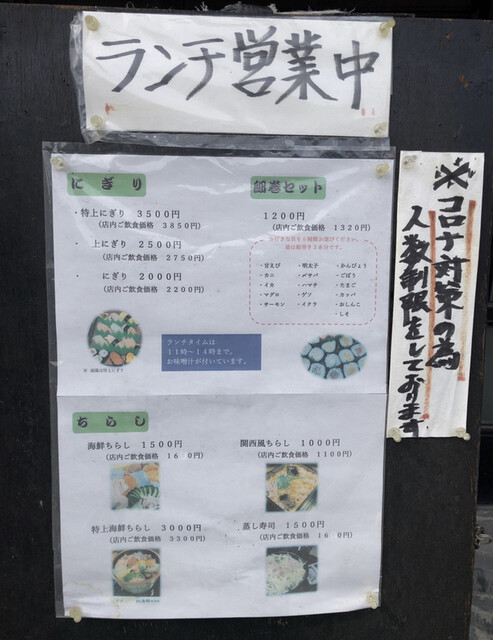 ランチ営業中
※コロナ対策の為
人数制限をしております
にぎり
・特上にぎり 3500円
(店内ご飲食価格 3850円)
・上にぎり 2500円
(店内ご飲食価格 2750円)
・にぎり 2000円
(店内ご飲食価格 2200円)
細巻セット
1200円
(店内ご飲食価格 1320円)
・甘えび ・明太子 ・かんぴょう
・カニ ・ ・ごぼう
・イカ ・ハマチ ・たまご
・マグロ ・ゲソ ・カッパ
・サーモン ・イクラ ・おしんこ
・しそ
ランチタイムは
11時~14時まで。
お味噌汁が付いています。
ちらし
海鮮ちらし 1500円
(店内ご飲食価格 16 0円)
関西風ちらし 1000円
(店内ご飲食価格 1100円)
特上海鮮ちらし 3000円
(店内ご飲食価格 3300円)
蒸し寿司 1500円
(店内ご飲食価格 16 0円)